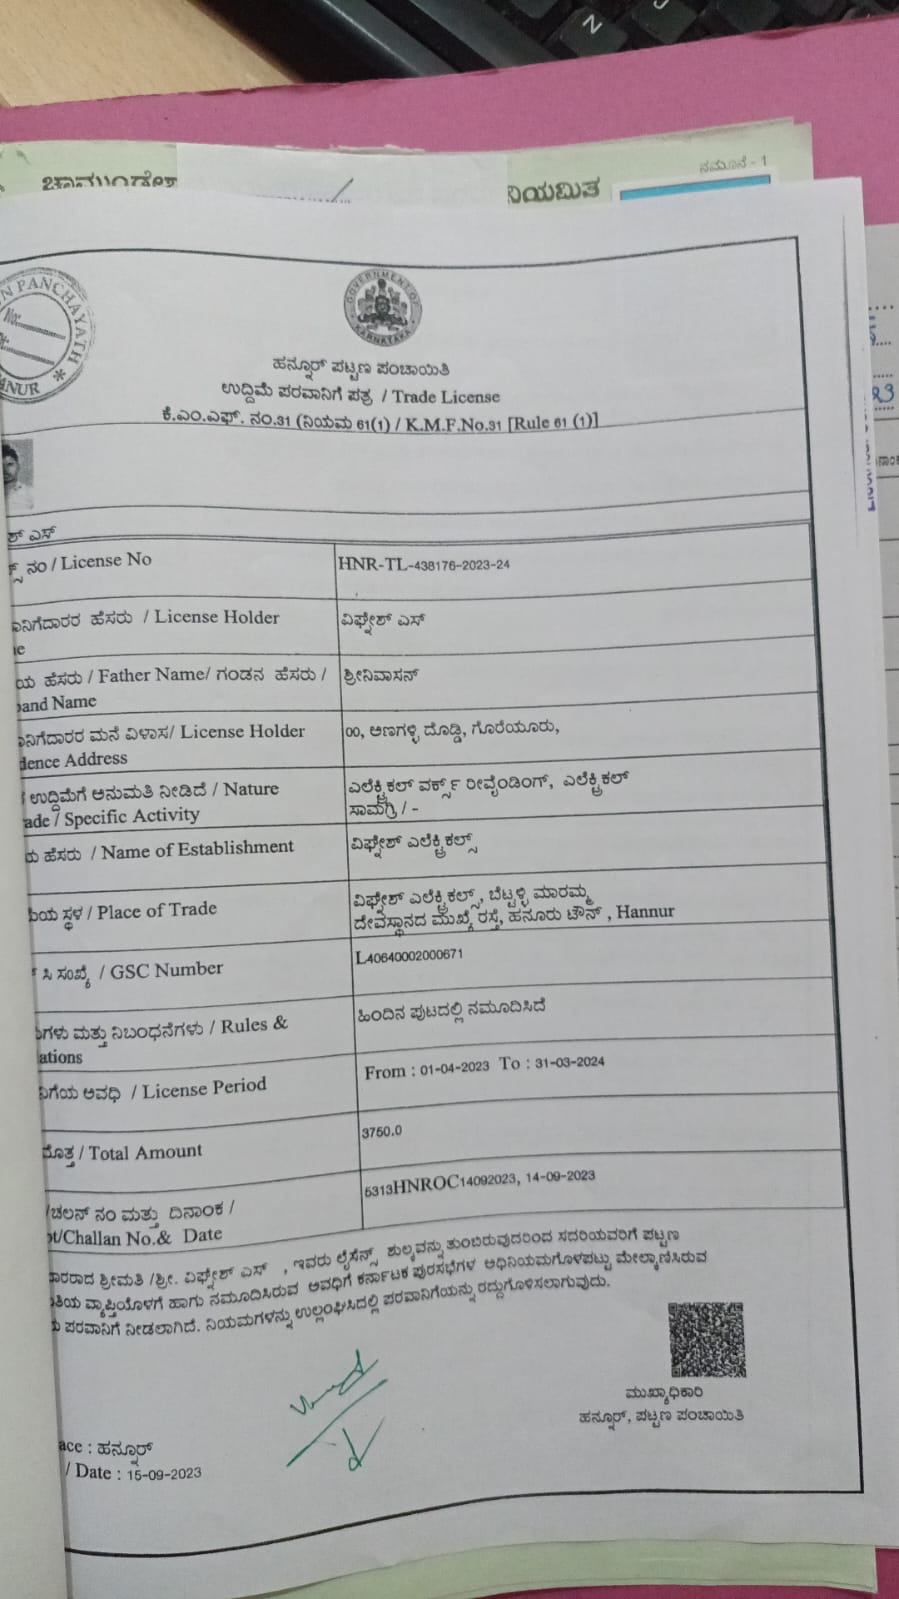 ನಮೂನೆ - 1
ಚಾಮುಂಡೇಶ
ನಿಯಮಿತ
N PANCHAYATH
No:
NUR *
GOVERNMENT OF
KARNATAKA
ಹನ್ನೂರ್ ಪಟ್ಟಣ ಪಂಚಾಯಿತಿ
ಉದ್ದಿಮೆ ಪರವಾನಿಗೆ ಪತ್ರ / Trade License
ಕೆ.ಎಂ.ಎಫ್. ನಂ.31 (ನಿಯಮ 61(1) / K.M.F.No.31 [Rule 61 (1)]
ಶ್ ಎಸ್
ನ್ಸ್ ನಂ / License No HNR-TL-438176-2023-24
ಾನಿಗೆದಾರರ ಹೆಸರು / License Holder ವಿಘ್ನೇಶ್ ಎಸ್
e
ಯ ಹೆಸರು / Father Name/ ಗಂಡನ ಹೆಸರು / ಶ್ರೀನಿವಾಸನ್
band Name
ಾನಿಗೆದಾರರ ಮನೆ ವಿಳಾಸ/ License Holder 00, ಅಣಗಳ್ಳಿ ದೊಡ್ಡಿ, ಗೊರೆಯೂರು,
dence Address
ಉದ್ದಿಮೆಗೆ ಅನುಮತಿ ನೀಡಿದೆ / Nature ಎಲೆಕ್ಟ್ರಿಕಲ್ ವರ್ಕ್ಸ್ ರೀವೈಂಡಿಂಗ್, ಎಲೆಕ್ಟ್ರಿಕಲ್
ade / Specific Activity ಸಾಮಗ್ರಿ / -
ಯ ಹೆಸರು / Name of Establishment ವಿಘ್ನೇಶ್ ಎಲೆಕ್ಟ್ರಿಕಲ್ಸ್
ಮೆಯ ಸ್ಥಳ / Place of Trade ವಿಘ್ನೇಶ್ ಎಲೆಕ್ಟ್ರಿಕಲ್ಸ್, ಬೆಟ್ಟಳ್ಳಿ ಮಾರಮ್ಮ
ದೇವಸ್ಥಾನದ ಮುಖ್ಯ ರಸ್ತೆ, ಹನೂರು ಟೌನ್ , Hannur
ಸಿ ಸಂಖ್ಯೆ / GSC Number L40640002000671
ುಗಳು ಮತ್ತು ನಿಬಂಧನೆಗಳು / Rules & ಹಿಂದಿನ ಪುಟದಲ್ಲಿ ನಮೂದಿಸಿದೆ
ations
ನಿಗೆಯ ಅವಧಿ / License Period From : 01-04-2023 To : 31-03-2024
ಮೊತ್ತ / Total Amount 3750.0
/ಚಲನ್ ನಂ ಮತ್ತು ದಿನಾಂಕ / 5313HNROC14092023, 14-09-2023
pt/Challan No.& Date
ದಾರರಾದ ಶ್ರೀಮತಿ /ಶ್ರೀ. ವಿಘ್ನೇಶ್ ಎಸ್ , ಇವರು ಲೈಸೆನ್ಸ್ ಶುಲ್ಕವನ್ನು ತುಂಬಿರುವುದರಿಂದ ಸದರಿಯವರಿಗೆ ಪಟ್ಟಣ
ತಿಯ ವ್ಯಾಪ್ತಿಯೊಳಗೆ ಹಾಗು ನಮೂದಿಸಿರುವ ಅವಧಿಗೆ ಕರ್ನಾಟಕ ಪುರಸಭೆಗಳ ಅಧಿನಿಯಮಗೊಳಪಟ್ಟು ಮೇಲ್ಕಾಣಿಸಿರುವ
ಪರವಾನಿಗೆ ನೀಡಲಾಗಿದೆ. ನಿಯಮಗಳನ್ನು ಉಲ್ಲಂಘಿಸಿದಲ್ಲಿ ಪರವಾನಿಗೆಯನ್ನು ರದ್ದುಗೊಳಿಸಲಾಗುವುದು.
ಮುಖ್ಯಾಧಿಕಾರಿ
ಹನ್ನೂರ್, ಪಟ್ಟಣ ಪಂಚಾಯಿತಿ
ace : ಹನ್ನೂರ್
/ Date : 15-09-2023